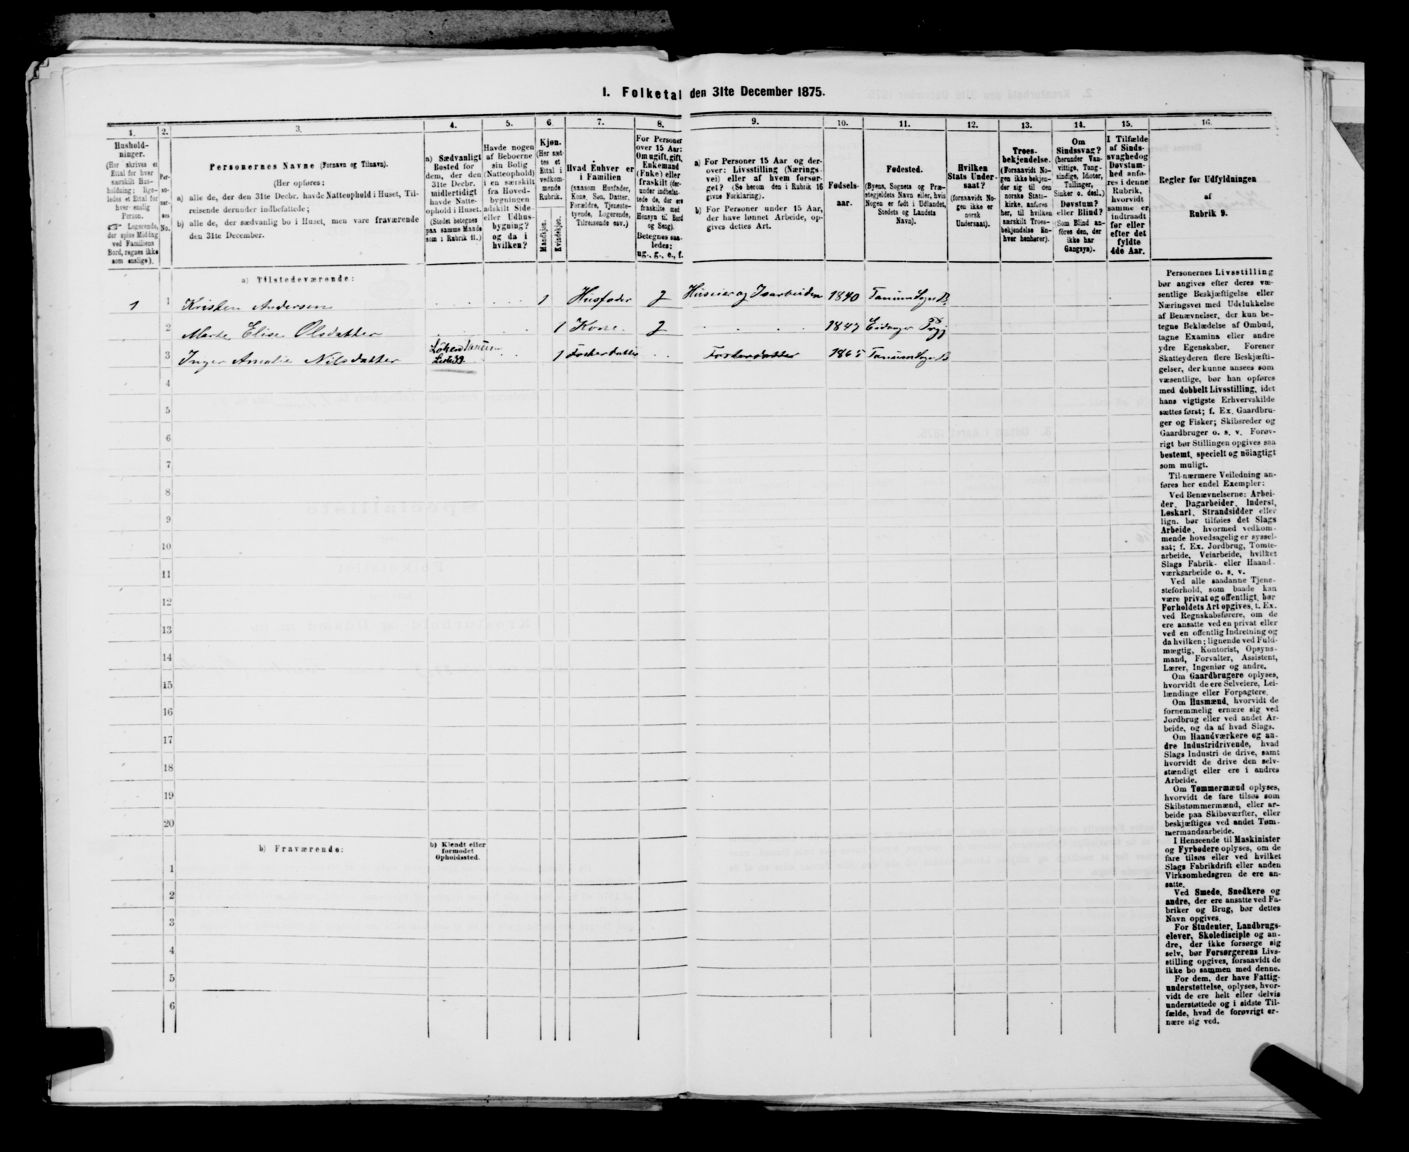 1. Folketal den 31te December 1875.
1. 2. 3. 4. 5. 6. 7. 8. 9. 10. 11. 12. 13. 14. 15. 16.
Personernes Navne (Fornavn og Tilnavn).
(Her opføres:
a) alle de, der den 31te Decbr. havde Natteophold i Huset, Tilreisende derunder indbefattede;
b) alle de, der sædvanlig bo i Huset, men vare fraværende den 31te December.
a) Sædvanligt Bosted for dem, der den 31te Decbr. midlertidigt havde Natteophold i Huset.
Havde nogen af Beboerne sin Bolig (Natteophold) i en særskilt fra Hovedbygningen adskilt Side eller Udhusbygning? og da i hvilken?
Kjøn.
Mandkjøn.
Kvindekjøn.
Hvad Enhver er i Familien
For Personer over 15 Aar: Om ugift, gift, Enkemand (Enke) eller fraskilt
ug., g., e., f.
a) For Personer 15 Aar og derover: Livsstilling (Næringsvei) eller af hvem forsørget? (Se herom den i Rubrik 16 givne Forklaring).
b) For Personer under 15 Aar, der have lønnet Arbeide, opgives dettes Art.
Fødselsaar.
Fødested.
(Byens, Sognets og Præstegjeldets Navn eller, hvis Nogen er født i Udlandet, Stedets og Landets Navn).
Hvilken Stats Undersaat?
(forsaavidt Nogen ikke er norsk Undersaat).
Troesbekjendelse.
Om Sindssvag?
Døvstum? eller Blind?
I Tilfælde af Sindssvaghed og Døvstumhed anføres i denne Rubrik, hvorvidt samme er indtraadt før eller efter det fyldte 4de Aar.
Regler for Udfyldningen af Rubrik 9.
a) Tilstedeværende:
1 1 Kristen Andersen 1 Husfader g Huseier og Isarbeider 1840 Tanum Sogn B.
2 Marte Elise Olsdatter 1 Kone g 1847 Eidanger Prgj
3 Inger Amalie Nilsdatter 1 Fosterdatter Fosterdatter 1865 Tanum Sogn B
4
5
6
7
8
9
10
11
12
13
14
15
16
17
18
19
20
b) Fraværende: b) Kjendt eller formodet Opholdssted.
1
2
3
4
5
6
Personernes Livsstilling bør angives efter deres væsentlige Beskjæftigelse eller Næringsvei med Udelukkelse af Benævnelser, der kun betegne Beklædelse af Ombud, tagne Examina eller andre ydre Egenskaber. Forener Skatteyderen flere Beskjæftigelser, der kunne ansees som væsentlige, bør han opføres med dobbelt Livsstilling, idet hans vigtigste Erhvervskilde sættes først; f. Ex. Gaardbruger og Fisker; Skibsreder og Gaardbruger o. s. v. Forøvrigt bør Stillingen opgives saa bestemt, specielt og nøiagtigt som muligt.
Til nærmere Veiledning anføres her endel Exempler:
Ved Benævnelserne: Arbeider, Dagarbeider, Inderst, Løskarl, Strandsidder eller lign. bør tilføies det Slags Arbeide, hvormed vedkommende hovedsagelig er sysselsat; f. Ex. Jordbrug, Tomtearbeide, Veiarbeide, hvilket Slags Fabrik- eller Haandværksarbeide o. s. v.
Ved alle saadanne Tjenesteforhold, som baade kan være privat og offentligt, bør Forholdets Art opgives, f. Ex. ved Regnskabsførere, om de ere ansatte ved en privat eller ved en offentlig Indretning og da hvilken; lignende ved Fuldmægtig, Kontorist, Opsynsmand, Forvalter, Assistent, Lærer, Ingeniør og andre.
Om Gaardbrugere oplyses, hvorvidt de ere Selveiere, Leilændinge eller Forpagtere.
Om Husmænd, hvorvidt de fornemmelig ernære sig ved Jordbrug eller ved andet Arbeide, og da af hvad Slags.
Om Haandværkere og andre Industridrivende, hvad Slags Industri de drive, samt hvorvidt de drive den selvstændigt eller ere i andres Arbeide.
Om Tømmermænd oplyses, hvorvidt de fare tilsøs som Skibstømmermænd, eller arbeide paa Skibsværfter, eller beskjæftiges ved andet Tømmermandsarbeide.
I Henseende til Maskinister og Fyrbødere oplyses, om de fare tilsøs eller ved hvilket Slags Fabrikdrift eller anden Virksomhedsgren de ere ansatte.
Ved Smede, Snedkere og andre, der ere ansatte ved Fabriker og Brug, bør dettes Navn opgives.
For Studenter, Landbrugselever, Skoledisciple og andre, der ikke forsørge sig selv, bør Forsørgerens Livsstilling opgives, forsaavidt de ikke bo sammen med denne.
For dem, der have Fattigunderstøttelse, oplyses, hvorvidt de ere helt eller delvis understøttede og i sidste Tilfælde, hvad de forøvrigt ernære sig ved.